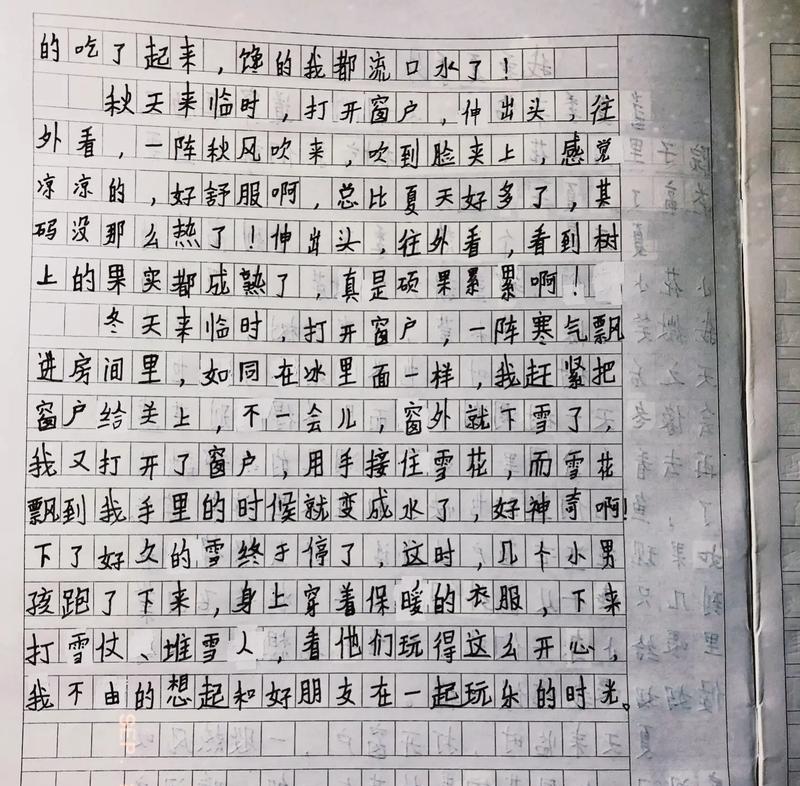 的吃了起来，馋的我都流口水了！
秋天来临时，打开窗户，伸出头，往
外看，一阵秋风吹来，吹到脸夹上，感觉
凉凉的，好舒服啊，总比夏天好多了，其
码没那么热了！伸出头，往外看，看到树
上的果实都成熟了，真是硕果累累啊！
冬天来临时，打开窗户，一阵寒气飘
进房间里，如同在冰里面一样，我赶紧把
窗户给关上，不一会儿，窗外就下雪了，
我又打开了窗户，用手接住雪花，而雪花
飘到我手里的时候就变成水了，好神奇啊！
下了好久的雪终于停了，这时，几个小男
孩跑了下来，身上穿着保暖的衣服，下来
打雪仗、堆雪人，看他们玩得这么开心，
我不由的想起和好朋友在一起玩乐的时光。